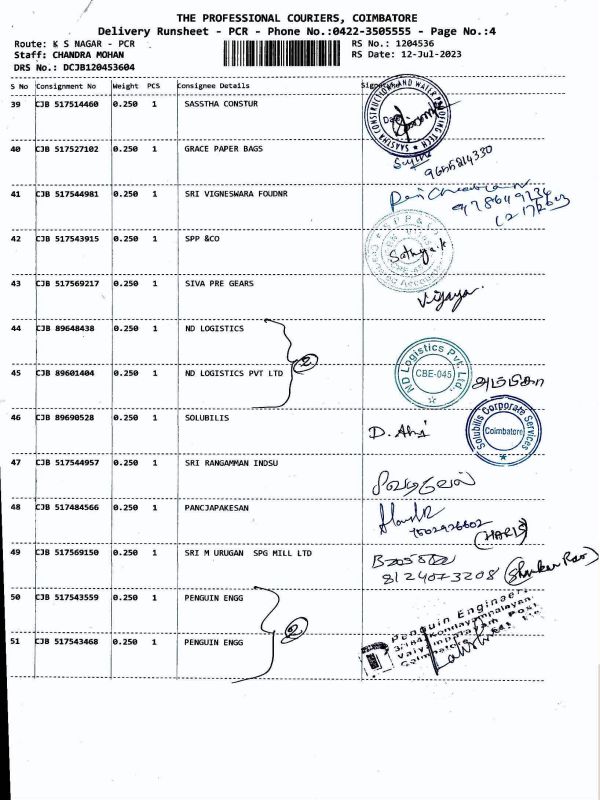 THE PROFESSIONAL COURIERS, COIMBATORE
Delivery Runsheet - PCR - Phone No.:0422-3505555 - Page No.:4
Route: K S NAGAR - PCR RS No.: 1204536
Staff: CHANDRA MOHAN RS Date: 12-Jul-2023
DRS No.: DCJB120453604
S No Consignment No Weight PCS Consignee Details
39 CJB 517514460 0.250 1 SASSTHA CONSTUR
40 CJB 517527102 0.250 1 GRACE PAPER BAGS
9655814330
41 CJB 517544981 0.250 1 SRI VIGNESWARA FOUDNR
42 CJB 517543915 0.250 1 SPP &CO
Sathya.k
43 CJB 517569217 0.250 1 SIVA PRE GEARS
Vijaya.
44 CJB 89648438 0.250 1 ND LOGISTICS
2
45 CJB 89601404 0.250 1 ND LOGISTICS PVT LTD
ND Logistics Pvt. Ltd.,
CBE-045
46 CJB 89690528 0.250 1 SOLUBILIS
Solubilis Corporate Services
Coimbatore
47 CJB 517544957 0.250 1 SRI RANGAMMAN INDSU
48 CJB 517484566 0.250 1 PANCJAPAKESAN
(HARIS)
49 CJB 517569150 0.250 1 SRI M URUGAN SPG MILL LTD
8124073208
50 CJB 517543559 0.250 1 PENGUIN ENGG
2
51 CJB 517543468 0.250 1 PENGUIN ENGG
Penguin Engineer